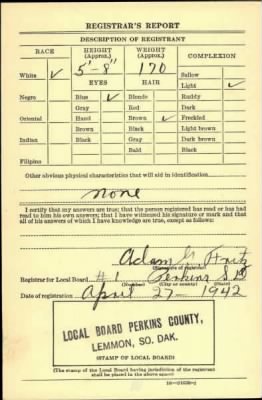 REGISTRAR'S REPORT
DESCRIPTION OF REGISTRANT
RACE HEIGHT (Approx.) WEIGHT (Approx.) COMPLEXION
White ✓ 5'-8" 170 Sallow
EYES HAIR Light ✓
Negro Blue ✓ Blonde Ruddy
Gray Red Dark
Oriental Hazel Brown ✓ Freckled
Brown Black Light brown
Indian Black Gray Dark brown
Bald Black
Filipino
Other obvious physical characteristics that will aid in identification
None
I certify that my answers are true; that the person registered has read or has had
read to him his own answers; that I have witnessed his signature or mark and that
all of his answers of which I have knowledge are true, except as follows:
Adam
(Signature of registrar)
Registrar for Local Board #1 Perkins S D
(Number) (City or county) (State)
Date of registration April 27-1942
LOCAL BOARD PERKINS COUNTY,
LEMMON, SO. DAK.
(STAMP OF LOCAL BOARD)
(The stamp of the Local Board having jurisdiction of the registrant
shall be placed in the above space)